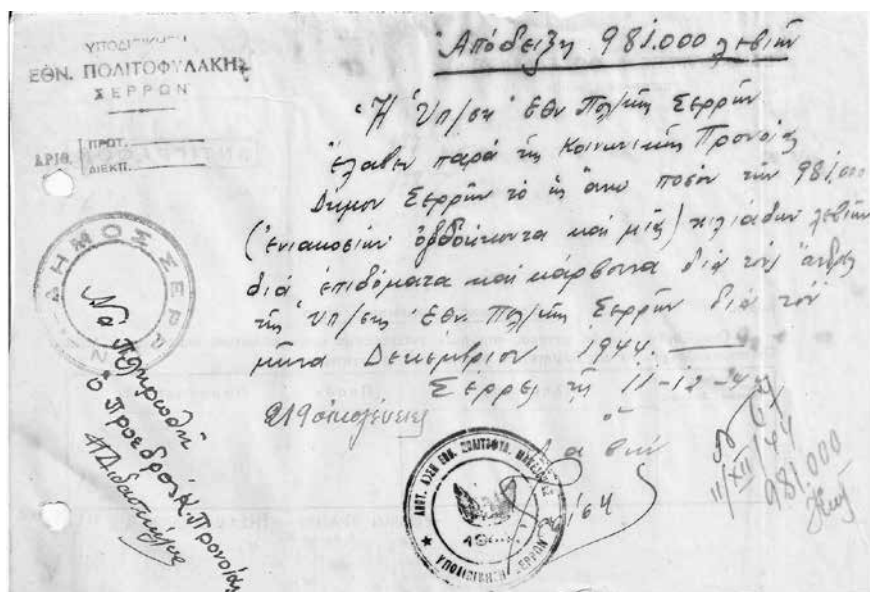 ΥΠΟΔΙΟΙΚΗΣΗ
ΕΘΝ. ΠΟΛΙΤΟΦΥΛΑΚΗΣ
ΣΕΡΡΩΝ
ΑΡΙΘ.
ΠΡΩΤ.
ΔΙΕΚΠ.
Ἀπόδειξη 981.000 λεβιῶν
Ἡ Ὑπ/σις Ἐθν Πολ/κῆς Σερρῶν
ἔλαβεν παρὰ τῆς Κοινωνικῆς Προνοίας
Δήμου Σερρῶν τὸ ὡς ἄνω ποσὸν τῶν 981.000
(ἐνιακοσίων ὀγδοήκοντα καὶ μιᾶς) χιλιάδων λεβιῶν
διὰ ἐπιδόματα καὶ κάρβουνα διὰ τοὺς ἄνδρας
τῆς Ὑπ/σεως Ἐθν Πολ/κῆς Σερρῶν διὰ τὸν
μῆνα Δεκέμβριον 1944.
Σέρρες τῇ 11-12-44
219 οἰκογένειες
Ὁ
Λαβών
ΔΗΜΟΣ ΣΕΡΡΩΝ
Νὰ πληρωθῆ
Ὁ Πρόεδρος Κ. Προνοίας
11/XII/44
981.000
ΥΠΟΔΙΟΙΚΗΣΗ ΣΕΡΡΩΝ